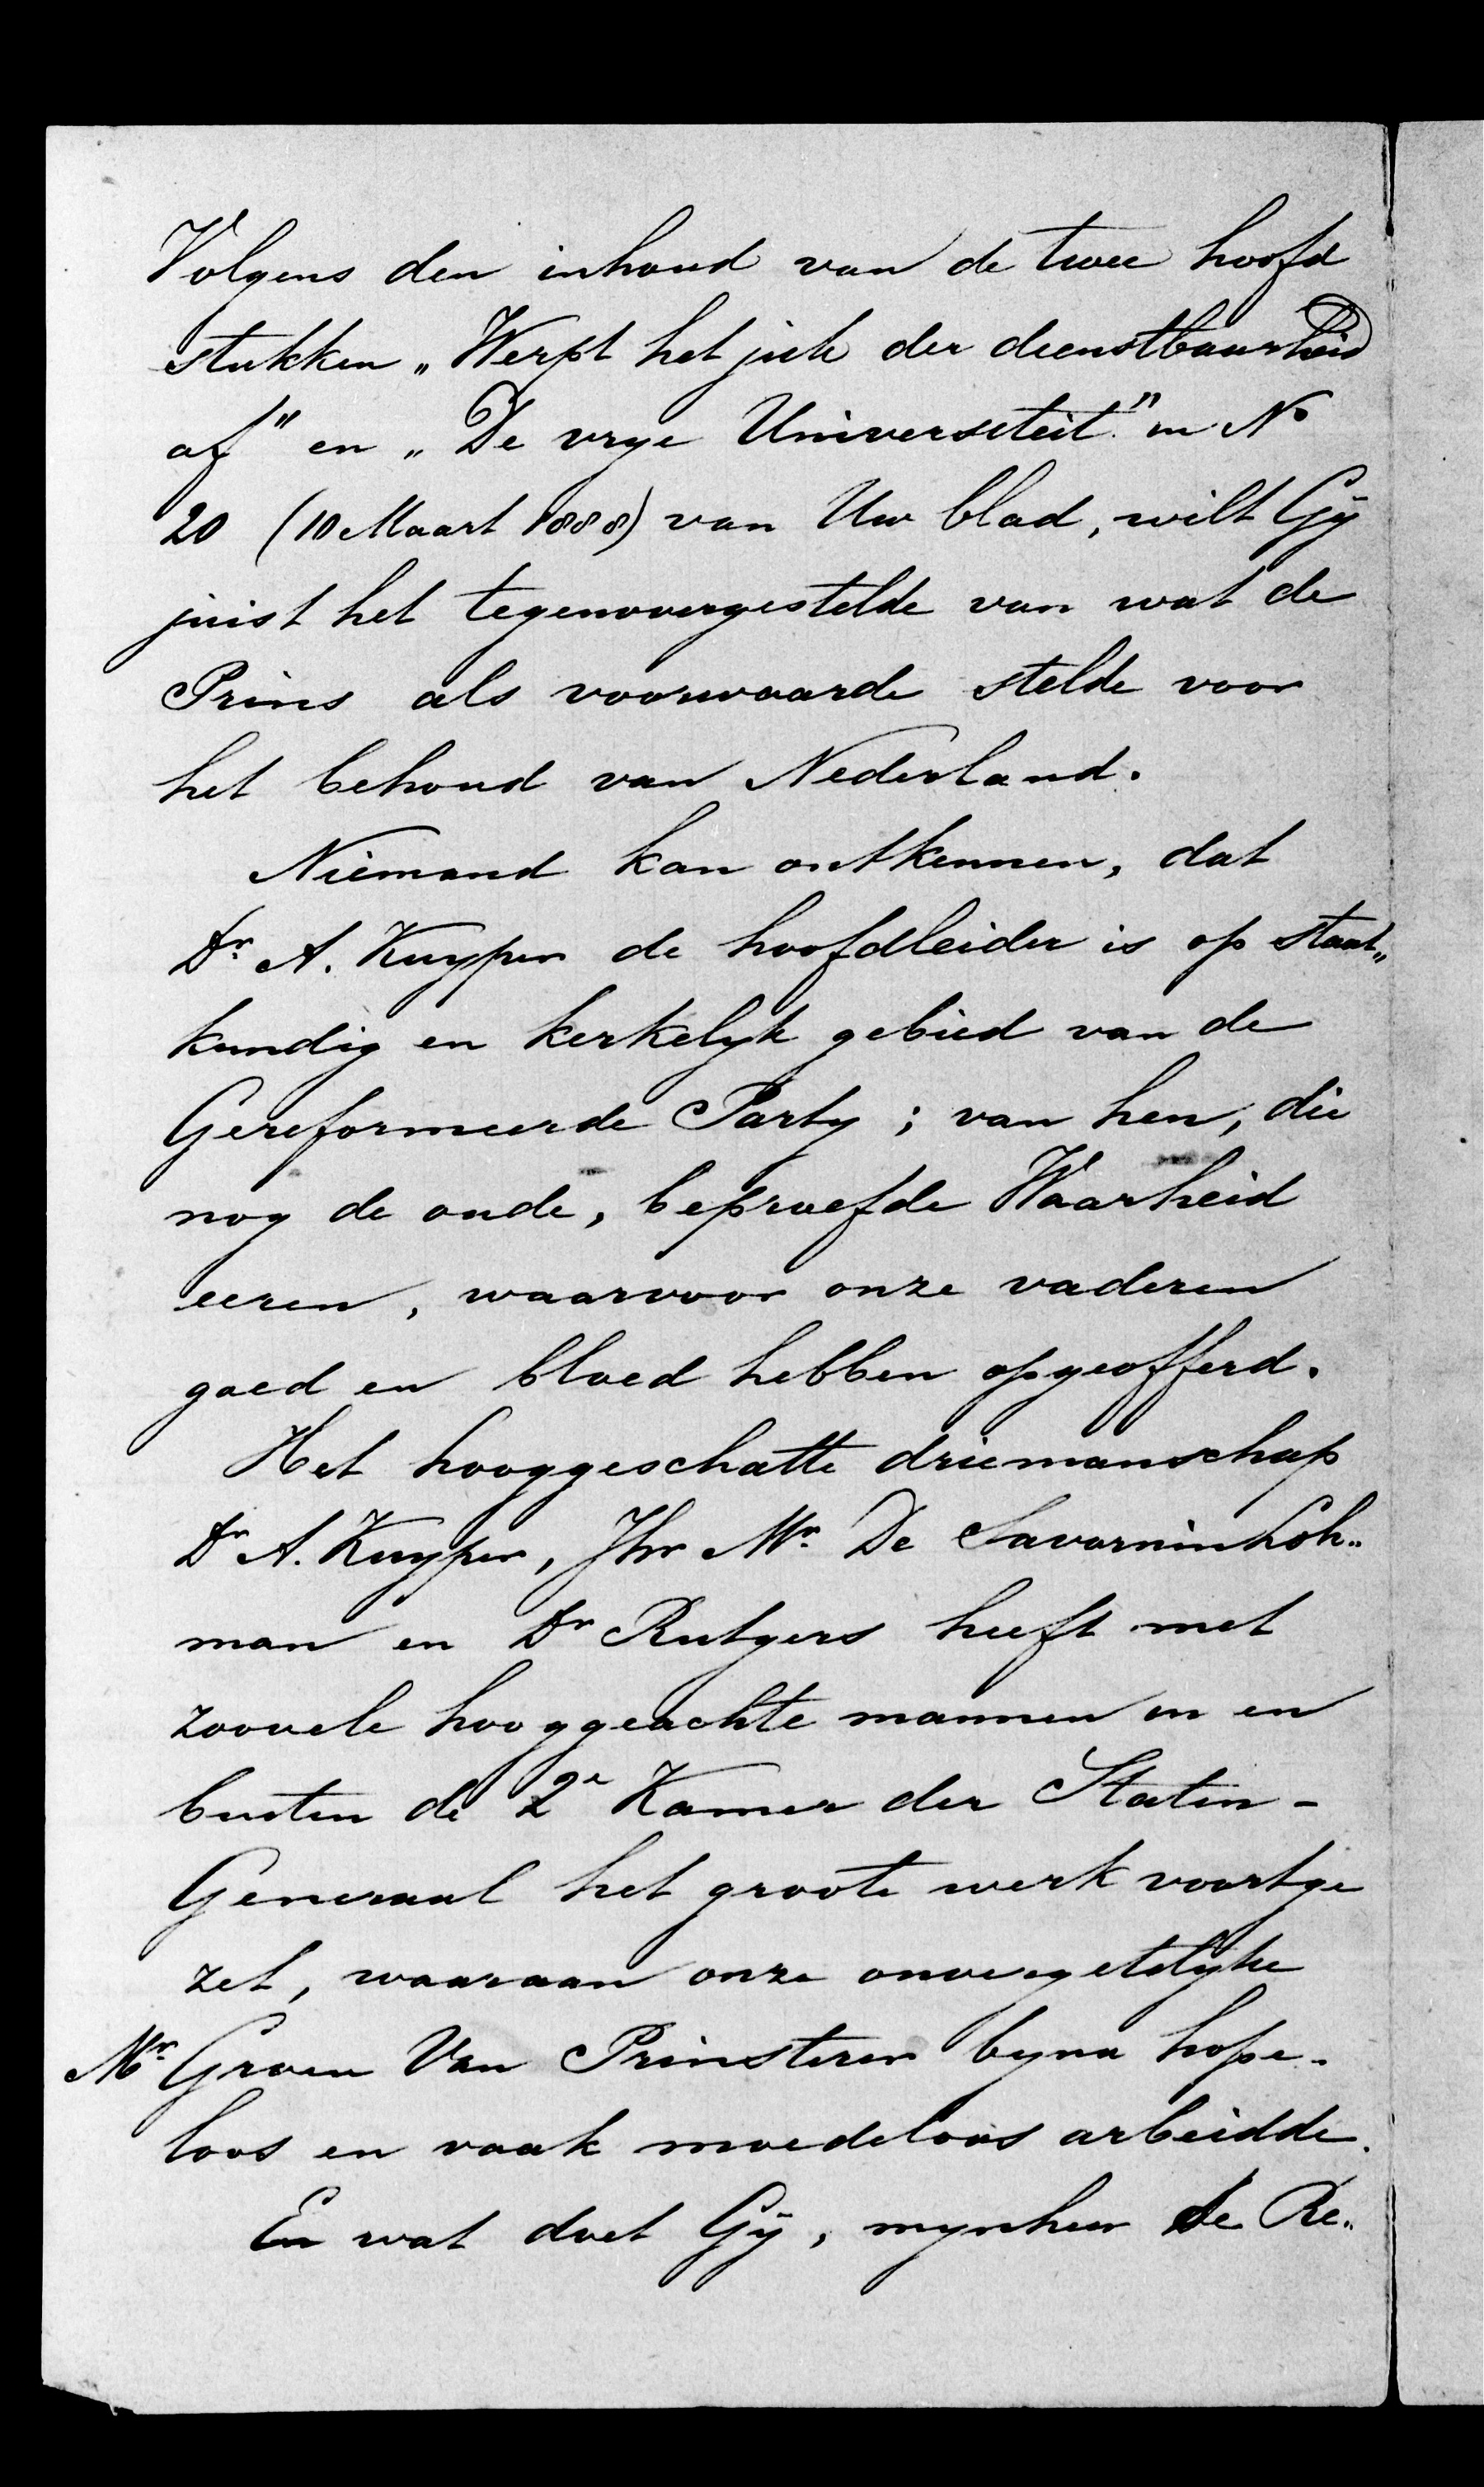 Volgens den inhoud van de twee hoofd
stukken „Werpt het juk der dienstbaarheid
af" en „De vrye Universiteit." in No
20 (10 Maart 1888) van Uw blad, wilt Gÿ
juist het tegenovergestelde van wat de
Prins als voorwaarde stelde voor
het behoud van Nederland.
Niemand kan ontkennen, dat
Dr. A. Kuyper de hoofdleider is op staat„
kundig en kerkelyk gebied van de
Gereformeerde Party; van hen, die
nog de oude, beproefde Waarheid
eeren, waarvoor onze vaderen
goed en bloed hebben opgeofferd.
Het hooggeschatte driemanschap
Dr A. Kuyper, Jhr Mr. De Savorninloh„
man en Dr Rutgers heeft met
zoovele hooggeachte mannen in en
buiten de 2e Kamer der Staten-
Generaal het groote werk voortge
zet, waaraan onze onvergetelyke
Mr. Groen Van Prinsterer byna hope-
loos en vaak moedeloos arbeidde.
En wat doet Gÿ, mynheer de Re„